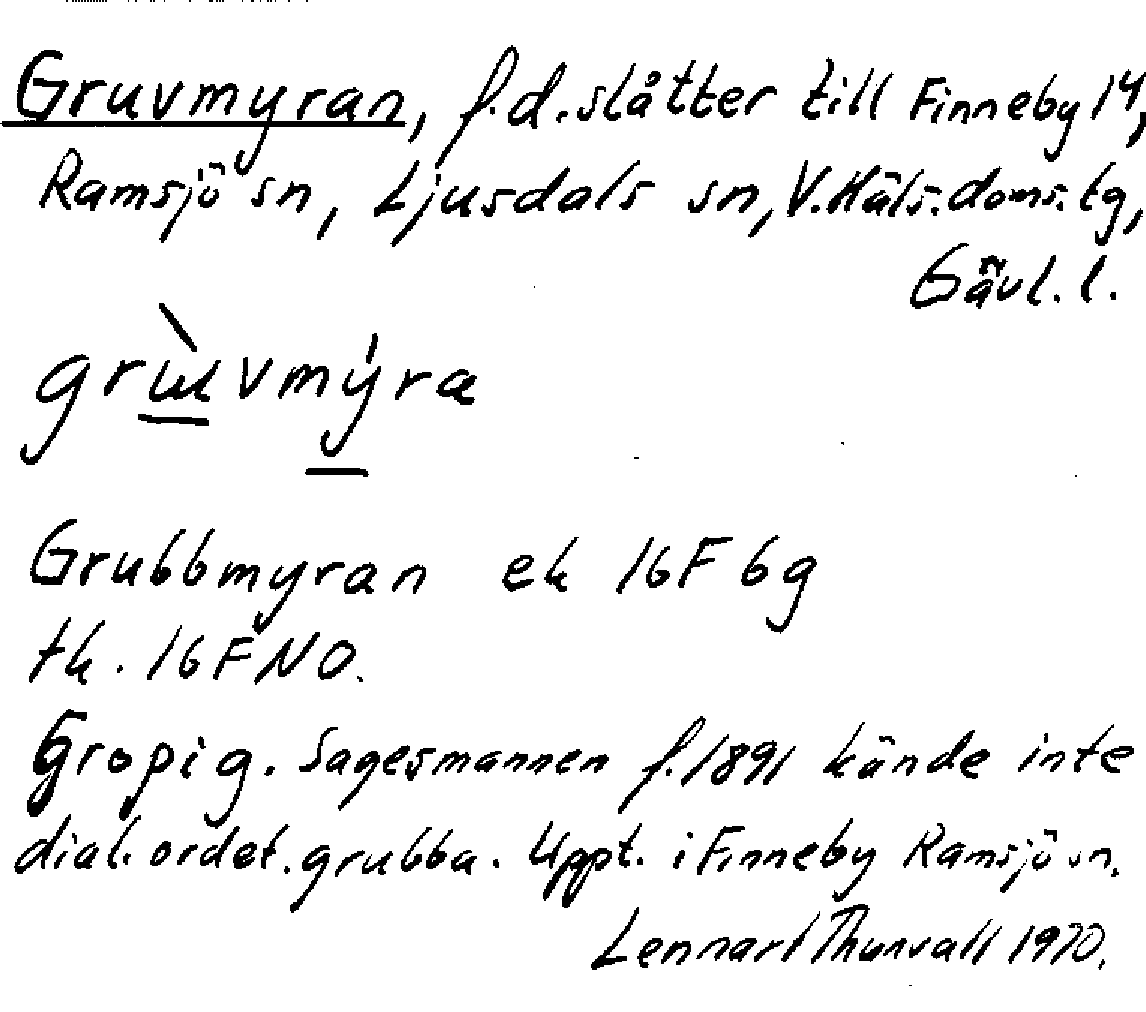 Gruvmyran, f.d. slåtter till Finneby 14,
Ramsjö sn, Ljusdals sn, V. Häls. doms. tg,
Gävl. l.
grɯ̀vmýra
Grubbmyran ek 16F 6g
tk. 16F NO.
Gropig. Sagesmannen f. 1891 kände inte
dial. ordet. grubba. Uppt. i Finneby Ramsjö sn.
Lennart Thunvall 1970.